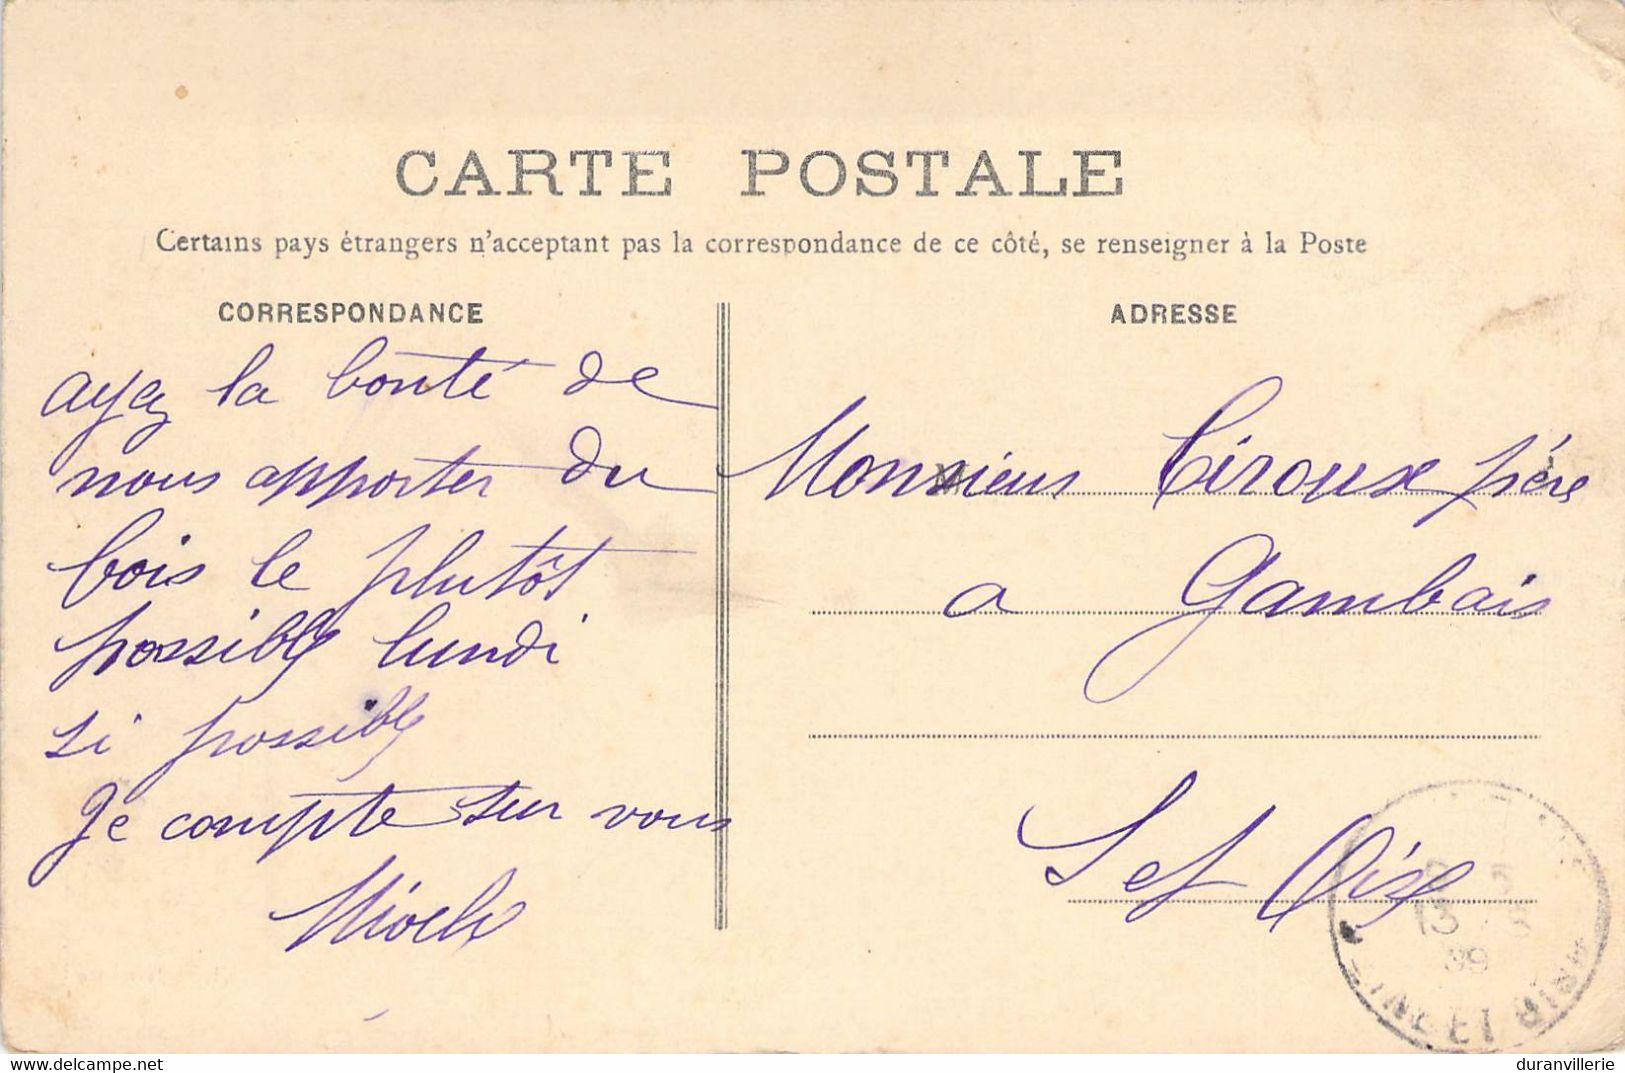 CARTE POSTALE
Certains pays étrangers n'acceptant pas la correspondance de ce côté, se renseigner à la Poste
CORRESPONDANCE
ayez la bonté de
nous apporter du
bois le plutôt
possible lundi
si possible
Je compte sur vous
ADRESSE
Monsieur Ciroux père
a Gambais
S et Oise
13
39
SEINE ET OISE
duranvillerie